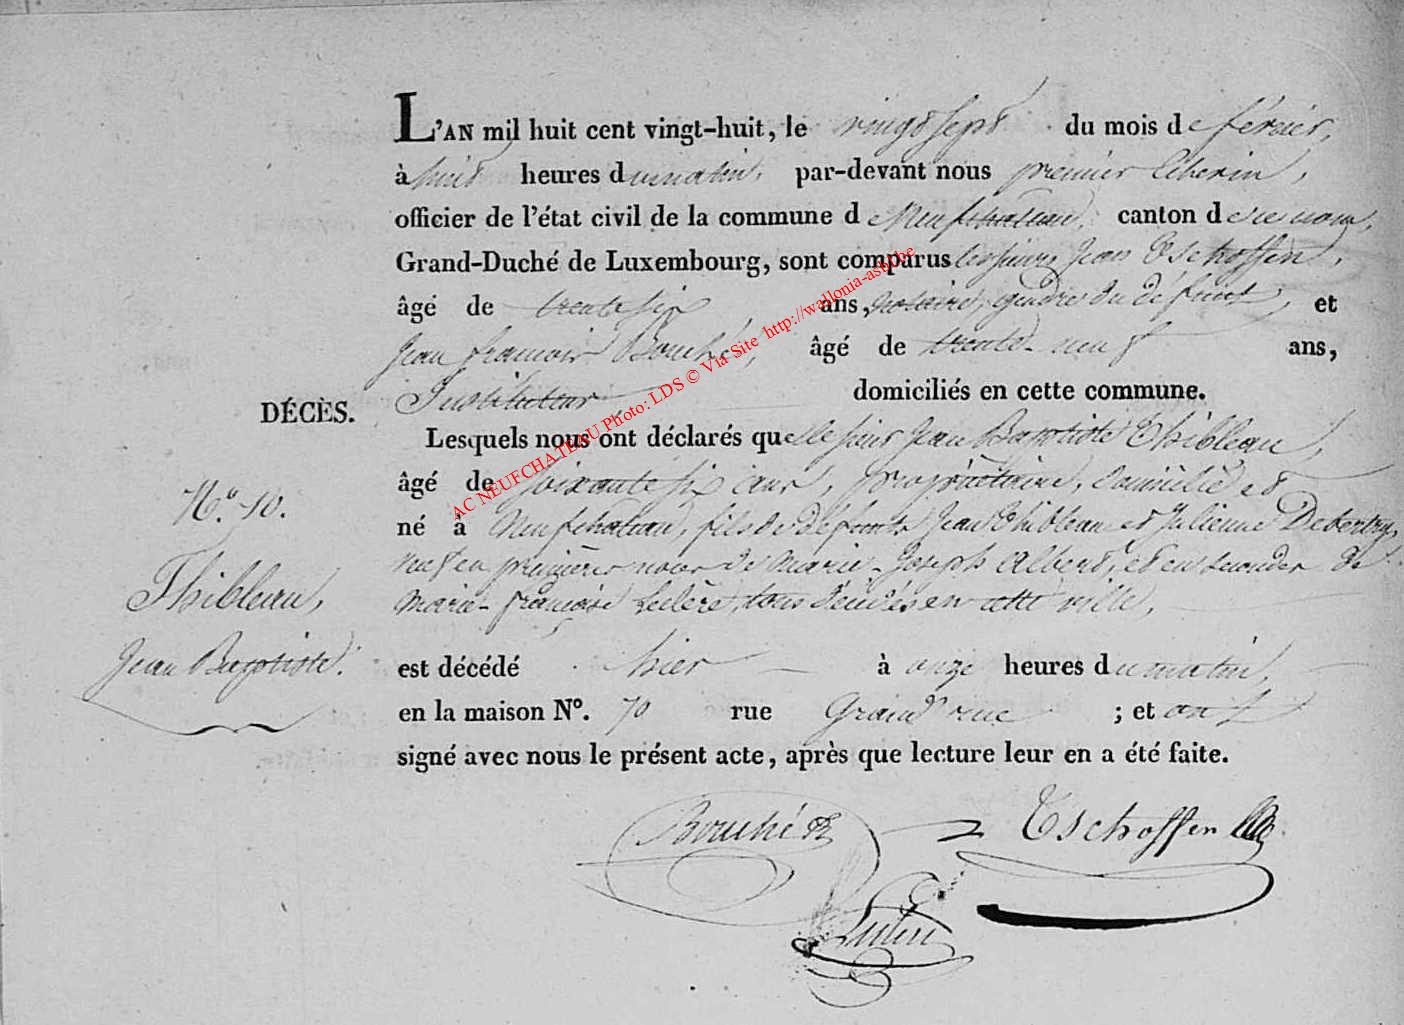 L'AN mil huit cent vingt-huit, le vingt sept du mois de févrièr,
à huit heures du matin, par-devant nous premier Echevin,
officier de l'état civil de la commune de Neufchateau, canton de ce nom,
Grand-Duché de Luxembourg, sont comparus les sieurs Jean Tschoffen,
âgé de trente six ans, notaire, gendre du défunt, et
Jean françois Bouché, âgé de trente-neuf ans,
Instituteur domiciliés en cette commune.
DÉCÈS.
Lesquels nous ont déclarés que le sieur Jean Baptiste Thibleau,
âgé de soixante six ans, propriètaire, domicilié et
N.º 10.
né à Neufchateau, fils de défunts Jean Thibleau et Julienne
veuf en premières noces de Marie-Joseph Albert, et en secondes de
Thibleau,
Jean Baptiste.
Marie-françoise Leclère, tous décédés en cette ville,
est décédé hier à onze heures du matin,
en la maison Nº. 70 rue Grand'rue ; et ont
signé avec nous le présent acte, après que lecture leur en a été faite.
Bouché Tschoffen
AC NEUFCHATEAU Photo: LDS © Via Site http://wallonia-asbl.be